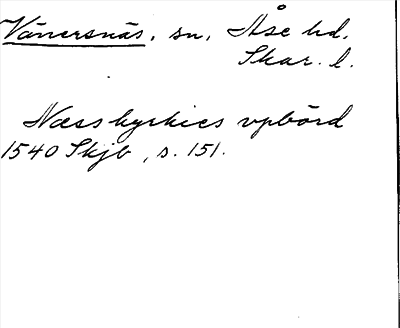 Vänersnäs, sn, Åse hd,
Skar. l.
Næss kyrkies vpbörd
1540 Skjb, s. 151.